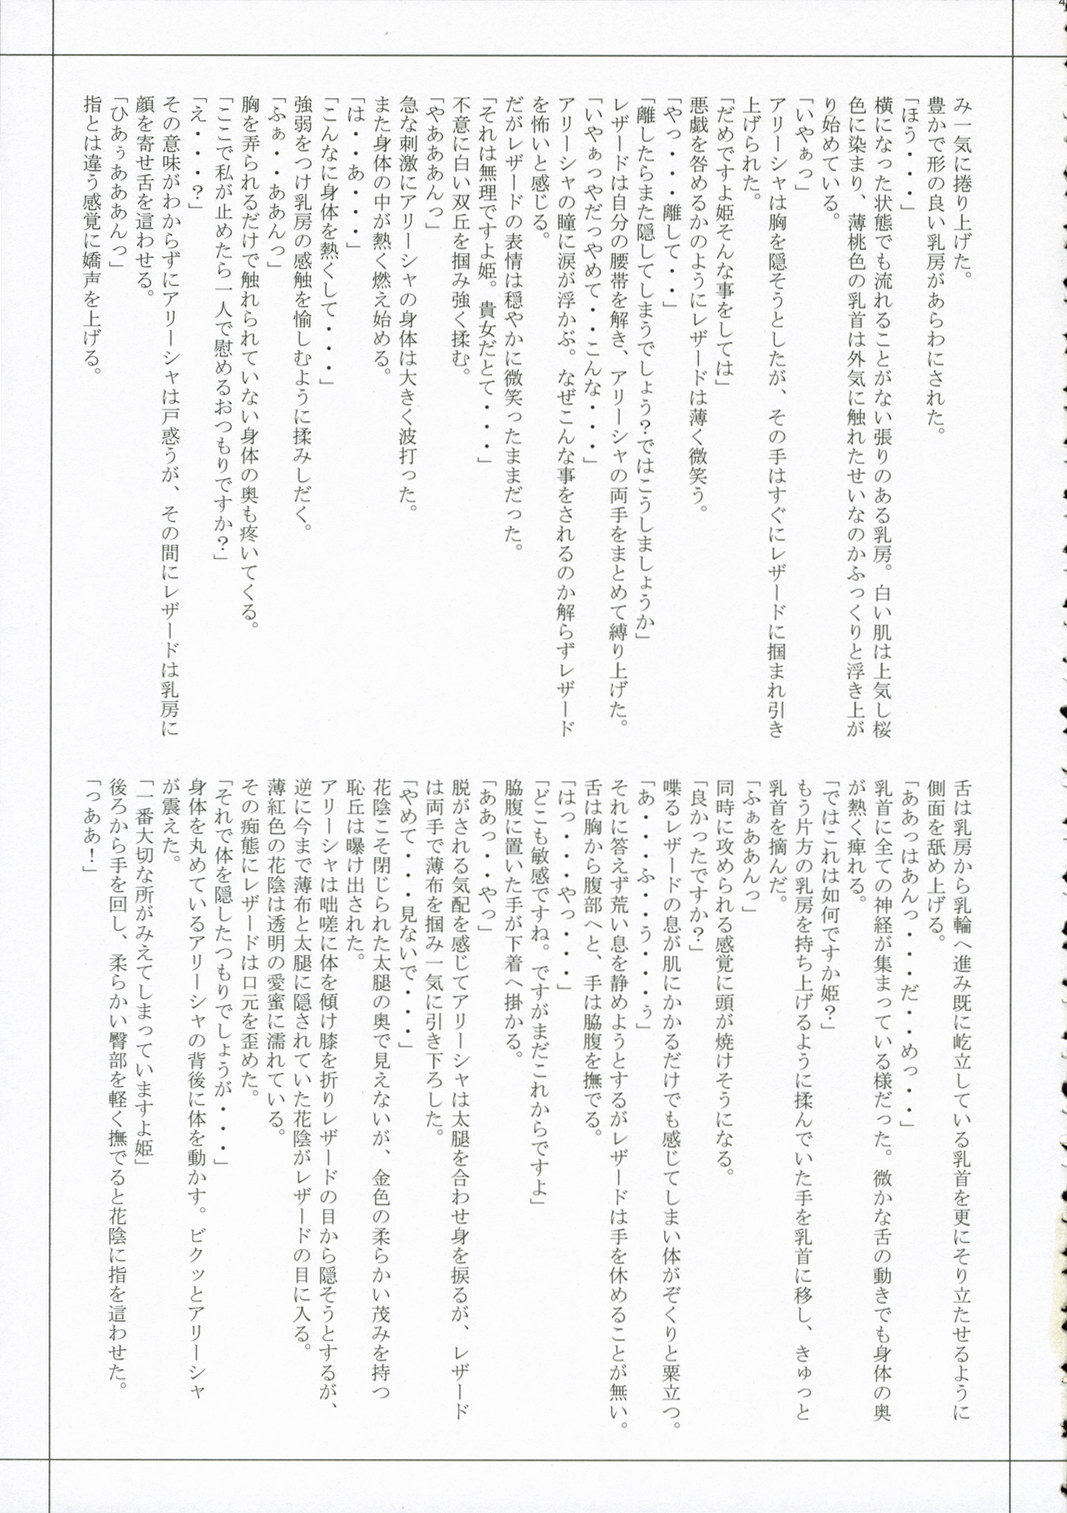 み一気に捲り上げた。
豊かで形の良い乳房があらわにされた。
「ほう・・・」
横になった状態でも流れることがない張りのある乳房。白い肌は上気し桜
色に染まり、薄桃色の乳首は外気に触れたせいなのかふっくりと浮き上が
り始めている。
「いやぁっ」
アリーシャは胸を隠そうとしたが、その手はすぐにレザードに掴まれ引き
上げられた。
「だめですよ姫そんな事をしては」
悪戯を咎めるかのようにレザードは薄く微笑う。
「やっ・・・離して・・」
「離したらまた隠してしまうでしょう？ではこうしましょうか」
レザードは自分の腰帯を解き、アリーシャの両手をまとめて縛り上げた。
「いやぁっやだっやめて・・こんな・・・」
アリーシャの瞳に涙が浮かぶ。なぜこんな事をされるのか解らずレザード
を怖いと感じる。
だがレザードの表情は穏やかに微笑ったままだった。
「それは無理ですよ姫。貴女だとて・・・」
不意に白い双丘を掴み強く揉む。
「やあああんっ」
急な刺激にアリーシャの身体は大きく波打った。
また身体の中が熱く燃え始める。
「は・・あ・・・」
「こんなに身体を熱くして・・・」
強弱をつけ乳房の感触を愉しむように揉みしだく。
「ふぁ・・ああんっ」
胸を弄られるだけで触れられていない身体の奥も疼いてくる。
「ここで私が止めたら一人で慰めるおつもりですか？」
「え・・・？」
その意味がわからずにアリーシャは戸惑うが、その間にレザードは乳房に
顔を寄せ舌を這わせる。
「ひあぅあああんっ」
指とは違う感覚に嬌声を上げる。
舌は乳房から乳輪へ進み既に屹立している乳首を更にそり立たせるように
側面を舐め上げる。
「ああっはあんっ・・・だ・・めっ・・」
乳首に全ての神経が集まっている様だった。微かな舌の動きでも身体の奥
が熱く痺れる。
「ではこれは如何ですか姫？」
もう片方の乳房を持ち上げるように揉んでいた手を乳首に移し、きゅっと
乳首を摘んだ。
「ふぁああんっ」
同時に攻められる感覚に頭が焼けそうになる。
「良かったですか？」
喋るレザードの息が肌にかかるだけでも感じてしまい体がぞくりと粟立つ。
「あ・・・ふ・・う・・・ぅ」
それに答えず荒い息を静めようとするがレザードは手を休めることが無い。
舌は胸から腹部へと、手は脇腹を撫でる。
「はっ・・・やっ・・・」
「どこも敏感ですね。ですがまだこれからですよ」
脇腹に置いた手が下着へ掛かる。
「ああっ・・やっ」
脱がされる気配を感じてアリーシャは太腿を合わせ身を捩るが、レザード
は両手で薄布を掴み一気に引き下ろした。
「やめて・・・見ないで・・・」
花陰こそ閉じられた太腿の奥で見えないが、金色の柔らかい茂みを持つ
恥丘は曝け出された。
アリーシャは咄嗟に体を傾け膝を折りレザードの目から隠そうとするが、
逆に今まで薄布と太腿に隠されていた花陰がレザードの目に入る。
薄紅色の花陰は透明の愛蜜に濡れている。
その痴態にレザードは口元を歪めた。
「それで体を隠したつもりでしょうが・・・」
身体を丸めているアリーシャの背後に体を動かす。ビクッとアリーシャ
が震えた。
「一番大切な所がみえてしまっていますよ姫」
後ろから手を回し、柔らかい臀部を軽く撫でると花陰に指を這わせた。
「っああ！」